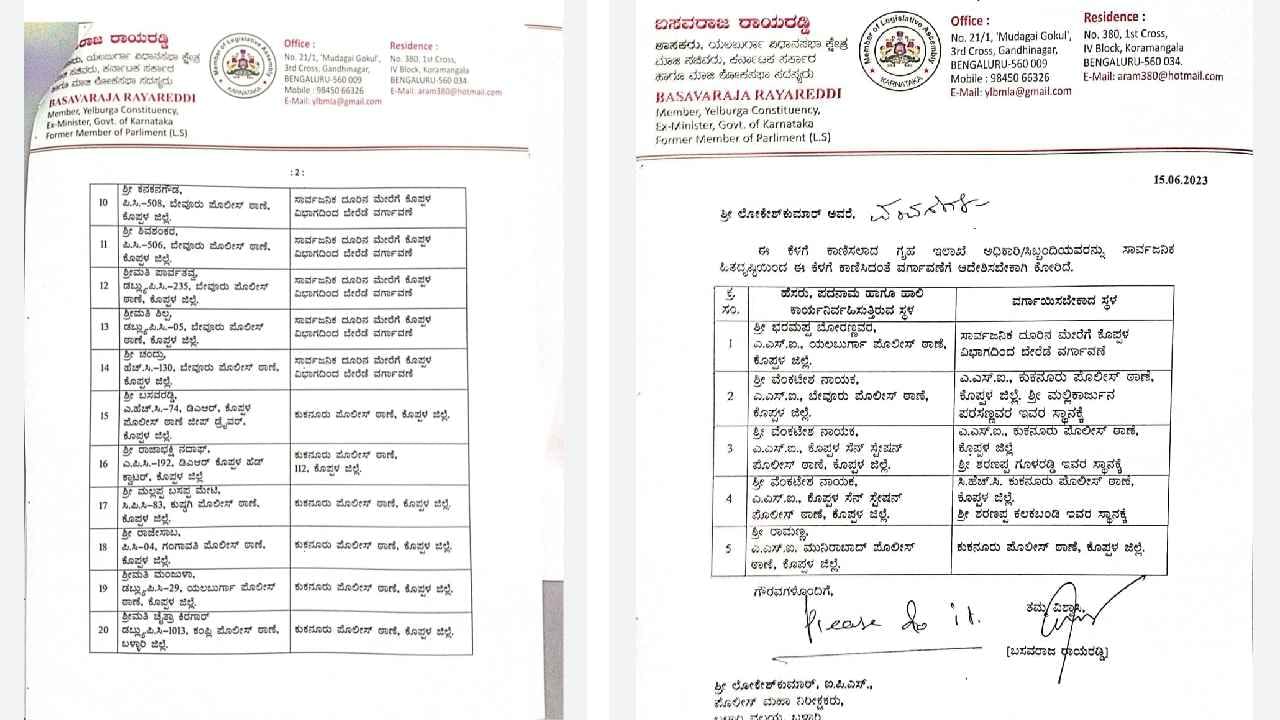 ರಾಜ ರಾಯರಡ್ಡಿ
ಶಾಸಕರು, ಯಲಬುರ್ಗಾ ವಿಧಾನಸಭಾ ಕ್ಷೇತ್ರ
ಸಚಿವರು, ಕರ್ನಾಟಕ ಸರ್ಕಾರ
ಹಾಗೂ ಮಾಜಿ ಲೋಕಸಭಾ ಸದಸ್ಯರು
BASAVARAJA RAYAREDDI
Member, Yelburga Constituency,
Ex-Minister, Govt. of Karnataka
Former Member of Parliment (L.S)
Member of Legislative Assembly
KARNATAKA
Office :
No. 21/1, 'Mudagai Gokul',
3rd Cross, Gandhinagar,
BENGALURU-560 009
Mobile : 98450 66326
E-Mail: ylbmla@gmail.com
Residence :
No. 380, 1st Cross,
IV Block, Koramangala
BENGALURU-560 034.
E-Mail: aram380@hotmail.com
: 2 :
10
ಶ್ರೀ ಕನಕನಗೌಡ,
ಪಿ.ಸಿ.-508, ಬೇವೂರು ಪೊಲೀಸ್ ಠಾಣೆ,
ಕೊಪ್ಪಳ ಜಿಲ್ಲೆ.
ಸಾರ್ವಜನಿಕ ದೂರಿನ ಮೇರೆಗೆ ಕೊಪ್ಪಳ
ವಿಭಾಗದಿಂದ ಬೇರೆಡೆ ವರ್ಗಾವಣೆ
11
ಶ್ರೀ ಶಿವಶಂಕರ,
ಪಿ.ಸಿ-506, ಬೇವೂರು ಪೊಲೀಸ್ ಠಾಣೆ,
ಕೊಪ್ಪಳ ಜಿಲ್ಲೆ.
ಸಾರ್ವಜನಿಕ ದೂರಿನ ಮೇರೆಗೆ ಕೊಪ್ಪಳ
ವಿಭಾಗದಿಂದ ಬೇರೆಡೆ ವರ್ಗಾವಣೆ
12
ಶ್ರೀಮತಿ ಪಾರ್ವತವ್ವ,
ಡಬ್ಲ್ಯುಪಿ.ಸಿ-235, ಬೇವೂರು ಪೊಲೀಸ್
ಠಾಣೆ, ಕೊಪ್ಪಳ ಜಿಲ್ಲೆ.
ಸಾರ್ವಜನಿಕ ದೂರಿನ ಮೇರೆಗೆ ಕೊಪ್ಪಳ
ವಿಭಾಗದಿಂದ ಬೇರೆಡೆ ವರ್ಗಾವಣೆ
13
ಶ್ರೀಮತಿ ಶಿಲ್ಪ,
ಡಬ್ಲ್ಯುಪಿ.ಸಿ-05, ಬೇವೂರು ಪೊಲೀಸ್
ಠಾಣೆ, ಕೊಪ್ಪಳ ಜಿಲ್ಲೆ.
ಸಾರ್ವಜನಿಕ ದೂರಿನ ಮೇರೆಗೆ ಕೊಪ್ಪಳ
ವಿಭಾಗದಿಂದ ಬೇರೆಡೆ ವರ್ಗಾವಣೆ
14
ಶ್ರೀ ಚಂದ್ರು,
ಹೆಚ್.ಸಿ-130, ಬೇವೂರು ಪೊಲೀಸ್ ಠಾಣೆ,
ಕೊಪ್ಪಳ ಜಿಲ್ಲೆ.
ಸಾರ್ವಜನಿಕ ದೂರಿನ ಮೇರೆಗೆ ಕೊಪ್ಪಳ
ವಿಭಾಗದಿಂದ ಬೇರೆಡೆ ವರ್ಗಾವಣೆ
15
ಶ್ರೀ ಬಸವರಡ್ಡಿ,
ಎ.ಹೆಚ್.ಸಿ-74, ಡಿಎಆರ್, ಕೊಪ್ಪಳ
ಪೊಲೀಸ್ ಠಾಣೆ ಜೀಪ್ ಡ್ರೈವರ್,
ಕೊಪ್ಪಳ ಜಿಲ್ಲೆ.
ಕುಕನೂರು ಪೊಲೀಸ್ ಠಾಣೆ, ಕೊಪ್ಪಳ ಜಿಲ್ಲೆ.
16
ಶ್ರೀ ರಾಜಾಭಕ್ಷಿ ನದಾಫ್,
ಎ.ಪಿ.ಸಿ-192, ಡಿಎಆರ್ ಕೊಪ್ಪಳ ಹೆಡ್
ಕ್ವಾಟರ್, ಕೊಪ್ಪಳ ಜಿಲ್ಲೆ
ಕುಕನೂರು ಪೊಲೀಸ್ ಠಾಣೆ,
112, ಕೊಪ್ಪಳ ಜಿಲ್ಲೆ.
17
ಶ್ರೀ ಮಲ್ಲಪ್ಪ ಬಸಪ್ಪ ಮೇಟಿ,
ಸಿ.ಪಿ.ಸಿ-83, ಕುಷ್ಟಗಿ ಪೊಲೀಸ್ ಠಾಣೆ,
ಕೊಪ್ಪಳ ಜಿಲ್ಲೆ.
ಕುಕನೂರು ಪೊಲೀಸ್ ಠಾಣೆ, ಕೊಪ್ಪಳ ಜಿಲ್ಲೆ.
18
ಶ್ರೀ ರಾಜೇಸಾಬ,
ಪಿ.ಸಿ-04, ಗಂಗಾವತಿ ಪೊಲೀಸ್ ಠಾಣೆ,
ಕೊಪ್ಪಳ ಜಿಲ್ಲೆ.
ಕುಕನೂರು ಪೊಲೀಸ್ ಠಾಣೆ, ಕೊಪ್ಪಳ ಜಿಲ್ಲೆ.
19
ಶ್ರೀಮತಿ ಮಂಜುಳಾ,
ಡಬ್ಲ್ಯುಪಿ.ಸಿ-29, ಯಲಬುರ್ಗಾ ಪೊಲೀಸ್
ಠಾಣೆ, ಕೊಪ್ಪಳ ಜಿಲ್ಲೆ.
ಕುಕನೂರು ಪೊಲೀಸ್ ಠಾಣೆ, ಕೊಪ್ಪಳ ಜಿಲ್ಲೆ.
20
ಶ್ರೀಮತಿ ಚೈತ್ರಾ ಕಿರಗಾರ್
ಡಬ್ಲ್ಯುಪಿ.ಸಿ-1013, ಕಂಪ್ಲಿ ಪೊಲೀಸ್ ಠಾಣೆ,
ಬಳ್ಳಾರಿ ಜಿಲ್ಲೆ.
ಕುಕನೂರು ಪೊಲೀಸ್ ಠಾಣೆ, ಕೊಪ್ಪಳ ಜಿಲ್ಲೆ.
ಬಸವರಾಜ ರಾಯರಡ್ಡಿ
ಶಾಸಕರು, ಯಲಬುರ್ಗಾ ವಿಧಾನಸಭಾ ಕ್ಷೇತ್ರ
ಮಾಜಿ ಸಚಿವರು, ಕರ್ನಾಟಕ ಸರ್ಕಾರ
ಹಾಗೂ ಮಾಜಿ ಲೋಕಸಭಾ ಸದಸ್ಯರು
BASAVARAJA RAYAREDDI
Member, Yelburga Constituency,
Ex-Minister, Govt. of Karnataka
Former Member of Parliment (L.S)
Member of Legislative Assembly
KARNATAKA
Office :
No. 21/1, 'Mudagai Gokul',
3rd Cross, Gandhinagar,
BENGALURU-560 009
Mobile : 98450 66326
E-Mail: ylbmla@gmail.com
Residence :
No. 380, 1st Cross,
IV Block, Koramangala
BENGALURU-560 034.
E-Mail: aram380@hotmail.com
15.06.2023
ಶ್ರೀ ಲೋಕೇಶ್‌ಕುಮಾರ್ ಅವರೆ,
ಈ ಕೆಳಗೆ ಕಾಣಿಸಲಾದ ಗೃಹ ಇಲಾಖೆ ಅಧಿಕಾರಿ/ಸಿಬ್ಬಂದಿಯವರನ್ನು ಸಾರ್ವಜನಿಕ
ಹಿತದೃಷ್ಟಿಯಿಂದ ಈ ಕೆಳಗೆ ಕಾಣಿಸಿದಂತೆ ವರ್ಗಾವಣೆಗೆ ಆದೇಶಿಸಬೇಕಾಗಿ ಕೋರಿದೆ.
ಕ್ರ.
ಸಂ.
ಹೆಸರು, ಪದನಾಮ ಹಾಗೂ ಹಾಲಿ
ಕಾರ್ಯನಿರ್ವಹಿಸುತ್ತಿರುವ ಸ್ಥಳ
ವರ್ಗಾಯಿಸಬೇಕಾದ ಸ್ಥಳ
1
ಶ್ರೀ ಭರಮಪ್ಪ ಬೋರಣ್ಣವರ,
ಎ.ಎಸ್.ಐ, ಯಲಬುರ್ಗಾ ಪೊಲೀಸ್ ಠಾಣೆ,
ಕೊಪ್ಪಳ ಜಿಲ್ಲೆ.
ಸಾರ್ವಜನಿಕ ದೂರಿನ ಮೇರೆಗೆ ಕೊಪ್ಪಳ
ವಿಭಾಗದಿಂದ ಬೇರೆಡೆ ವರ್ಗಾವಣೆ
2
ಶ್ರೀ ವೆಂಕಟೇಶ ನಾಯಕ,
ಎ.ಎಸ್.ಐ., ಬೇವೂರು ಪೊಲೀಸ್ ಠಾಣೆ,
ಕೊಪ್ಪಳ ಜಿಲ್ಲೆ.
ಎ.ಎಸ್.ಐ., ಕುಕನೂರು ಪೊಲೀಸ್ ಠಾಣೆ,
ಕೊಪ್ಪಳ ಜಿಲ್ಲೆ. ಶ್ರೀ ಮಲ್ಲಿಕಾರ್ಜುನ
ಪರಸಣ್ಣವರ ಇವರ ಸ್ಥಾನಕ್ಕೆ
3
ಶ್ರೀ ವೆಂಕಟೇಶ ನಾಯಕ,
ಎ.ಎಸ್.ಐ., ಕೊಪ್ಪಳ ಸೆನ್ ಸ್ಟೇಷನ್
ಪೊಲೀಸ್ ಠಾಣೆ, ಕೊಪ್ಪಳ ಜಿಲ್ಲೆ.
ಎ.ಎಸ್.ಐ., ಕುಕನೂರು ಪೊಲೀಸ್ ಠಾಣೆ,
ಕೊಪ್ಪಳ ಜಿಲ್ಲೆ
ಶ್ರೀ ಶರಣಪ್ಪ ಗೂಳರಡ್ಡಿ ಇವರ ಸ್ಥಾನಕ್ಕೆ
4
ಶ್ರೀ ವೆಂಕಟೇಶ ನಾಯಕ,
ಎ.ಎಸ್.ಐ, ಕೊಪ್ಪಳ ಸೆನ್ ಸ್ಟೇಷನ್
ಪೊಲೀಸ್ ಠಾಣೆ, ಕೊಪ್ಪಳ ಜಿಲ್ಲೆ.
ಸಿ.ಹೆಚ್.ಸಿ. ಕುಕನೂರು ಪೊಲೀಸ್ ಠಾಣೆ,
ಕೊಪ್ಪಳ ಜಿಲ್ಲೆ.
ಶ್ರೀ ಶರಣಪ್ಪ ಕಲಕಬಂಡಿ ಇವರ ಸ್ಥಾನಕ್ಕೆ
5
ಶ್ರೀ ರಾಮಣ್ಣ,
ಎ.ಎಸ್.ಐ. ಮುನಿರಾಬಾದ್ ಪೊಲೀಸ್
ಠಾಣೆ, ಕೊಪ್ಪಳ ಜಿಲ್ಲೆ.
ಕುಕನೂರು ಪೊಲೀಸ್ ಠಾಣೆ, ಕೊಪ್ಪಳ ಜಿಲ್ಲೆ.
ಗೌರವಗಳೊಂದಿಗೆ,
Please do it.
ತಮ್ಮ ವಿಶ್ವಾಸಿ,
[ಬಸವರಾಜ ರಾಯರಡ್ಡಿ]
ಶ್ರೀ ಲೋಕೇಶ್‌ಕುಮಾರ್, ಐ.ಪಿ.ಎಸ್.,
ಪೊಲೀಸ್ ಮಹಾ ನಿರೀಕ್ಷಕರು,
ಬಳ್ಳಾರಿ ವಲಯ, ಬಳ್ಳಾರಿ.